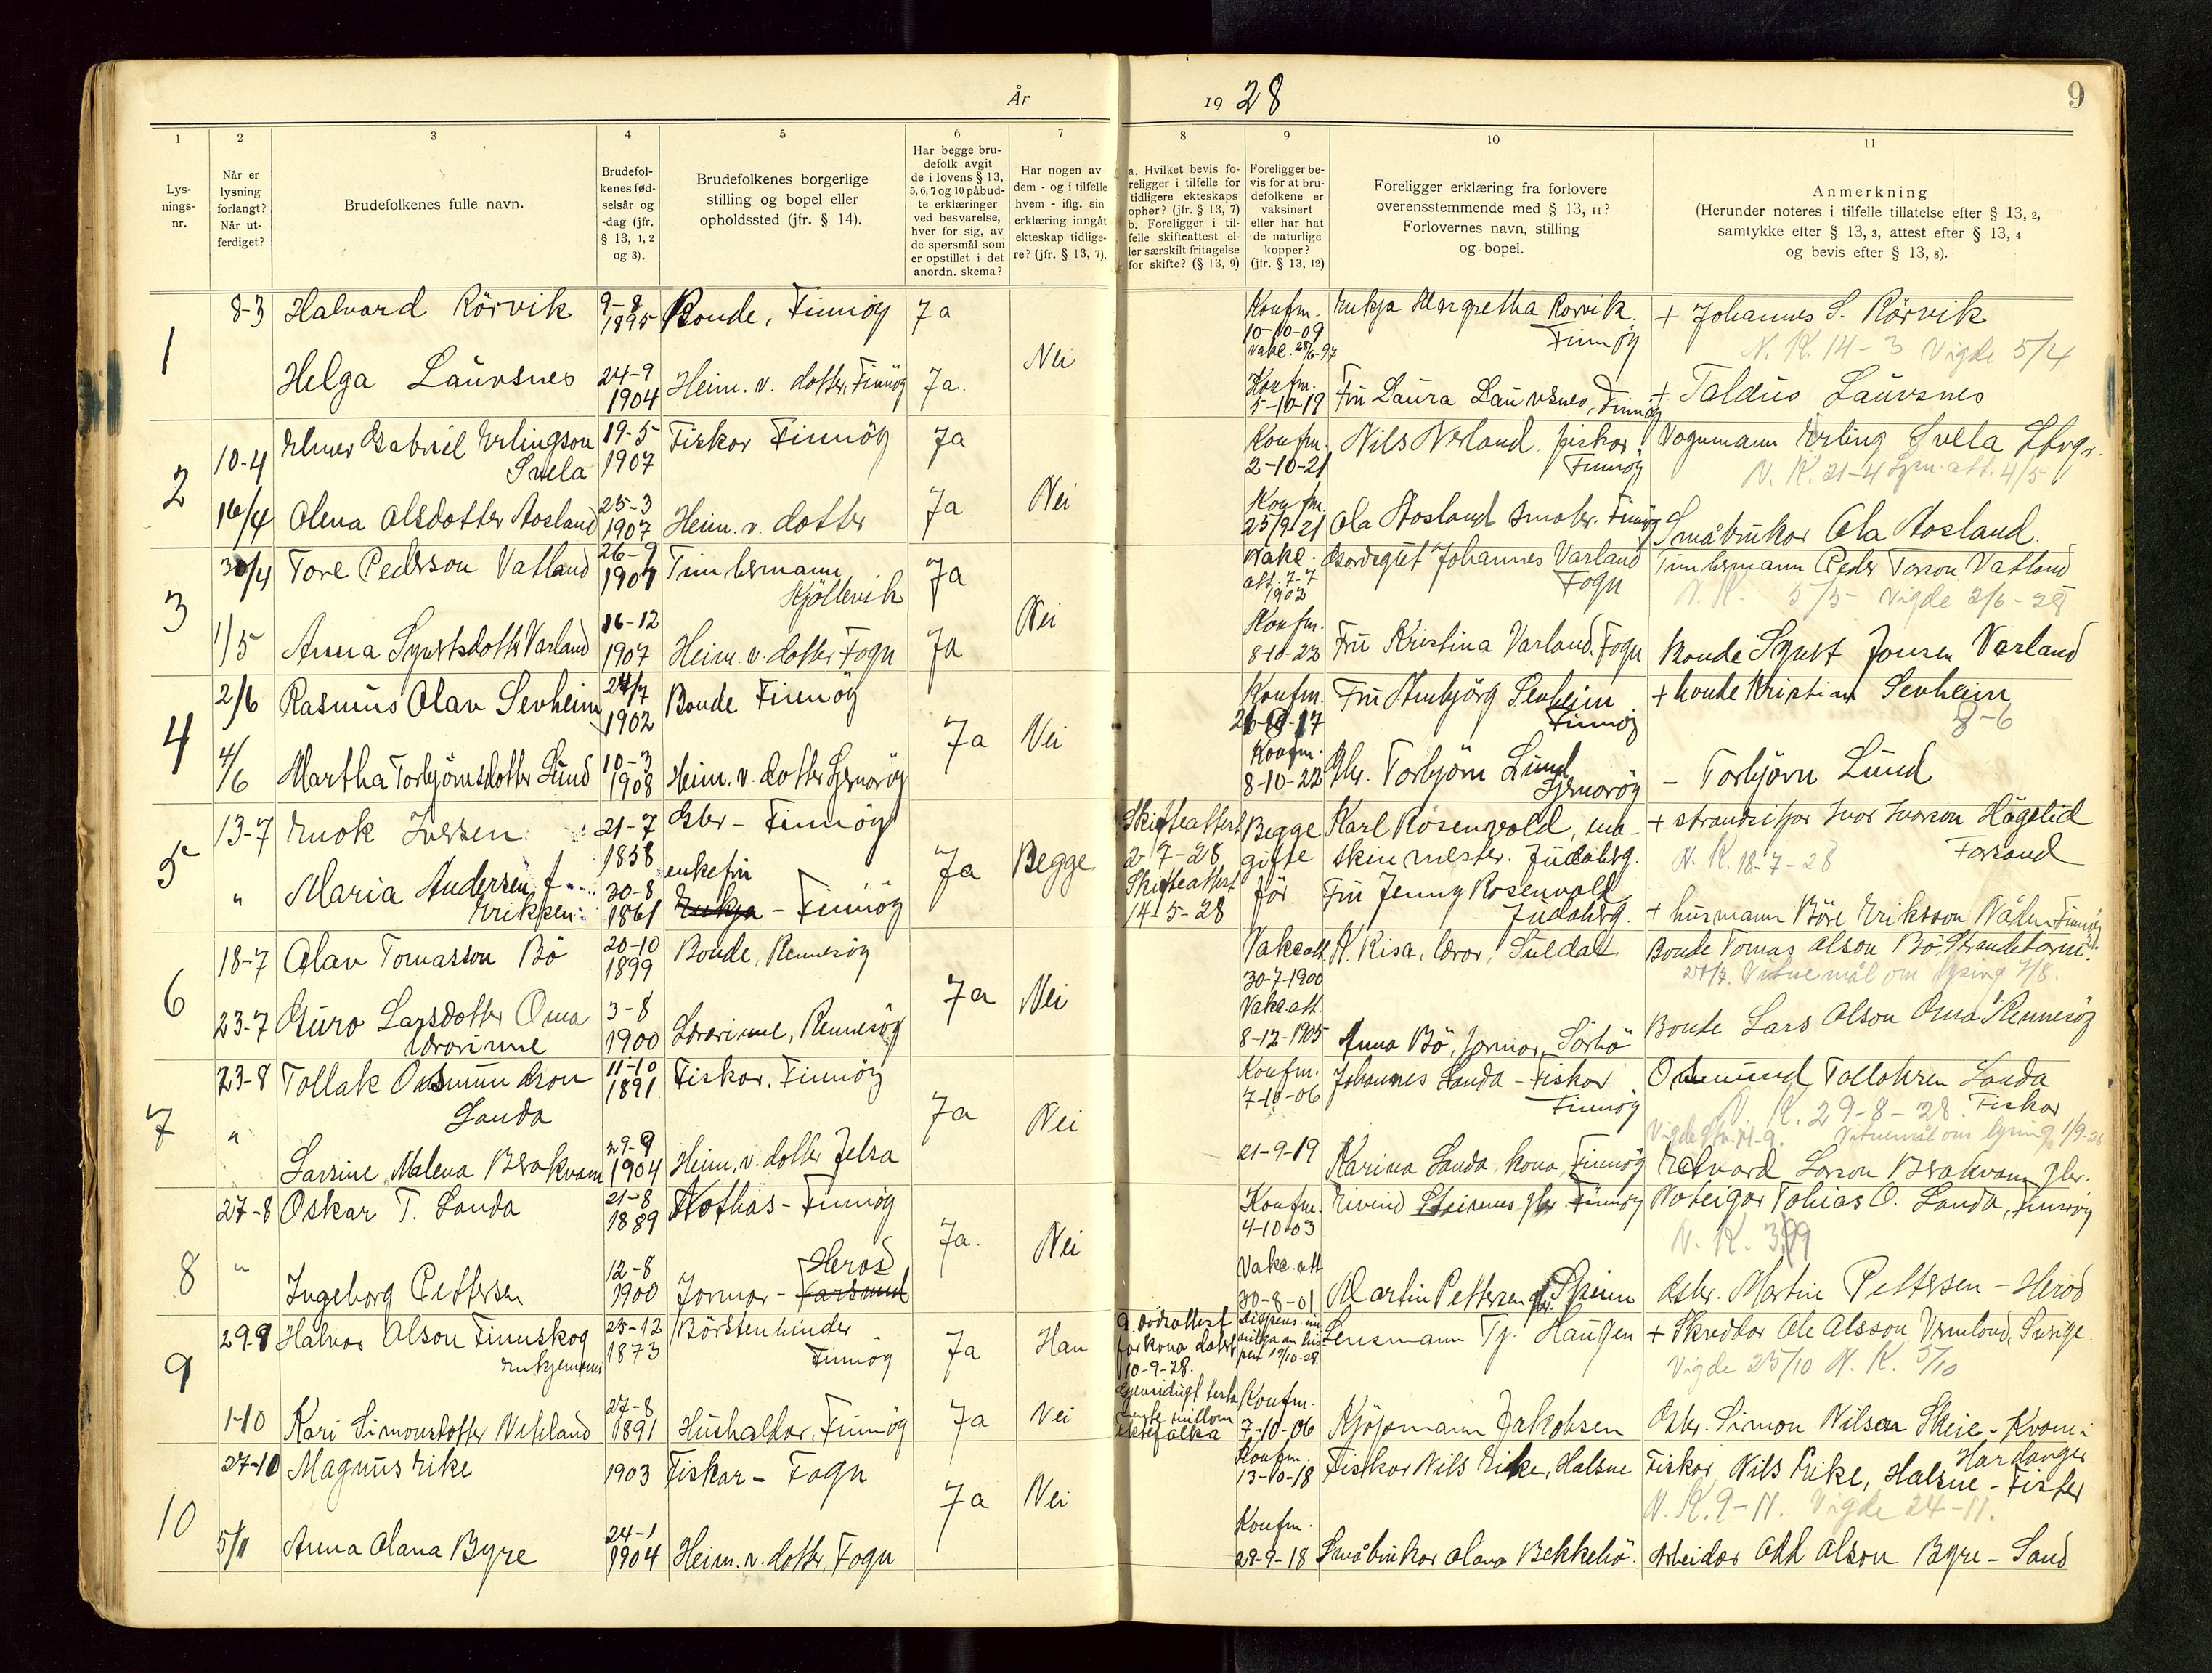 År
19 28
9
1
2
3
4
5
6
7
8
9
10
11
Lys-
nings-
nr.
Når er
lysning
forlangt?
Når ut-
ferdiget?
Brudefolkenes fulle navn.
Brudefol-
kenes fød-
selsår og
-dag (jfr.
§ 13, 1, 2
og 3).
Brudefolkenes borgerlige
stilling og bopel eller
opholdssted (jfr. § 14).
Har begge bru-
defolk avgit
de i lovens § 13,
5, 6, 7 og 10 påbud-
te erklæringer
ved besvarelse,
hver for sig, av
de spørsmål som
er opstillet i det
anordn. skema?
Har nogen av
dem - og i tilfelle
hvem - iflg. sin
erklæring inngåt
ekteskap tidlige-
re? (jfr. § 13, 7).
a. Hvilket bevis fo-
religger i tilfelle for
tidligere ekteskaps
ophør? (jfr. § 13, 7)
b. Foreligger i til-
felle skifteattest el-
ler særskilt fritagelse
for skifte? (§ 13, 9)
Foreligger be-
vis for at bru-
defolkene er
vaksinert
eller har hat
de naturlige
kopper?
(jfr. § 13, 12)
Foreligger erklæring fra forlovere
overensstemmende med § 13, 11?
Forlovernes navn, stilling
og bopel.
Anmerkning
(Herunder noteres i tilfelle tillatelse efter § 13, 2,
samtykke efter § 13, 3, attest efter § 13, 4
og bevis efter § 13, 8).
1
8-3 Halvard Rörvik 9-8 1895 Bonde, Finnöy Ja
Konfm. 10-10-09 Vakc. 28/6-97 Enkja Margretha Rorvik. Finnöy + Johannes S. Rörvik
N. K. 14-3 Vigde 5/4
Nei
Helga Laurvsnes 24-9 1904 Heim. v. dotter, Finnöy Ja.
Konfm. 5-10-19 Fru Laura Laurvsnes, Finnöy + Taldus Laurvsnes
2
10-4 Elmer Gabriel Erlingson Svela 19-5 1907 Fiskar Finnöy Ja
Konfm. 2-10-21 Nils Narland fiskar Finnöy Vognmann Erling Svela Stvgr.
N. K. 21-4 Lysn.att. 4/5
Nei
16/4 Olena Olsdotter Aosland 25-3 1907 Heim. v. dotter Ja
Konfm. 25/9-21 Ola Aosland smabr. Finnöy Småbrukar Ola Aosland.
3
30/4 Tore Pederson Vatland 26-9 1901 Timbermann Hjöllevik Ja
Vakc. att. 7-7 1902 Gardsgut Johannes Varland Fogn Timbermann Peder Torson Vatland
N. K. 5/5 Vigde 2/6-28
Nei
1/5 Anna Syvertsdotter Varland 16-12 1907 Heim. v. dotter Fogn Ja
Konfm. 8-10-22 Fru Kristina Varland. Fogn Bonde Syvert Jonsen Varland
4
2/6 Rasmus Olav Sevheim 24/7 1902 Bonde Finnöy
Konfm. 17 Fru Ambjörg Sevheim Finnöy + bonde Kristian Sevheim
8-6
Ja Nei
4/6 Martha Torbjörnsdotter Lund 10-3 1908 Heim. v. dotter Sjernaröy
Konfm. 8-10-22 Gbr. Torbjörn Lund Sjernaröy - Torbjörn Lund
5
13-7 Enok Iversen 21-7 1858 Gbr - Finnöy
Skifteattest 2-7-28 Begge gifte för Karl Rosenvold, maskinmester. Judaberg. + strandsitjar Ivar Ivarson Hågelid Forsand
N. K. 18-7-28
Ja Begge
" Maria Andersen f. Erikson 30-8 1861 enkefru Enkja - Finnöy
Skifteattest 14-5-28 Fru Jenny Rosenvold Judaberg. + husmann Böre Eriksson Nåden Finnöy
6
18-7 Olav Tomasson Bö 20-10 1899 Bonde, Rennesöy
Vakc att. 30-7-1900 R. Risa, lærar, Suldal Bonde Tomas Olson Bö, Strandebarm.
Vitnemål om lysing 4/8.
Ja Nei
23-7 Guro Larsdotter Oma lærarinne 3-8 1900 Lærarinne, Rennesöy
Vakc. att. 8-12-1905 Anna Bö, Jormor, Sörbö Bonde Lars Olson Oma Rennesöy
7
23-8 Tollak Osmundson Landa 11-10 1891 Fiskar. Finnöy
Konfm. 7-10-06 Johannes Landa - Fiskar Finnöy Osmund Tollaksen Landa Fiskar
N. K. 29-8-28.
Vitnemål om lysing 1/9-28
Ja Nei
" Larsine Malena Brakvam 29-9 1904 Heim. v. dotter Jelsa
21-9-19 Karina Landa, kona, Finnöy Edvard Larson Brakvam gbr.
8
27-8 Oskar T. Landa 21-8 1889 Notbas - Finnöy
Konfm. 4-10-03 Eivind Steinnes gbr Finnöy Noteigar Tobias O. Landa, Finnöy
N. K. 3/9
Ja. Nei
" Ingeborg Pettersen 12-8 1900 Jormor - Heröd
Vakc. att 30-8-01 Martin Pettersen gbr. Gbr. Martin Pettersen - Heröd
9
29-9 Halvor Olson Finnskog enkjemann 25-12 1873 Börstenbinder Finnöy Ja Han
a. dödsattest for kona datert 10-9-28. Lensmann Tj. Haugen + Skreddar Ole Alsson, Vermland, Sverige.
Vigde 25/10 N. K. 5/10
1-10 Kari Simonsdotter Vetland 27-8 1891 Hushaldar, Finnöy Ja Nei
Gjensidigt testamente millom ektefolka Konfm. 7-10-06 Kjöpmann Jakobsen Gbr. Simon Nilsen Skeie - Kvam i Hardanger
10
27-10 Magnus Eike 1903 Fiskar - Fogn
Konfm. 13-10-18 Fiskar Nils Eike, Halsne Fiskar Nils Eike, Halsne - Fister
N. K. 9-11. Vigde 24-11.
Ja Nei
5/11 Anna Olana Byre 24-1 1904 Heim. v. dotter, Fogn
Konfm. 29-9-18 Småbrukar Olav Bekkebö. Arbeidar Odd Olson Byre - Sand